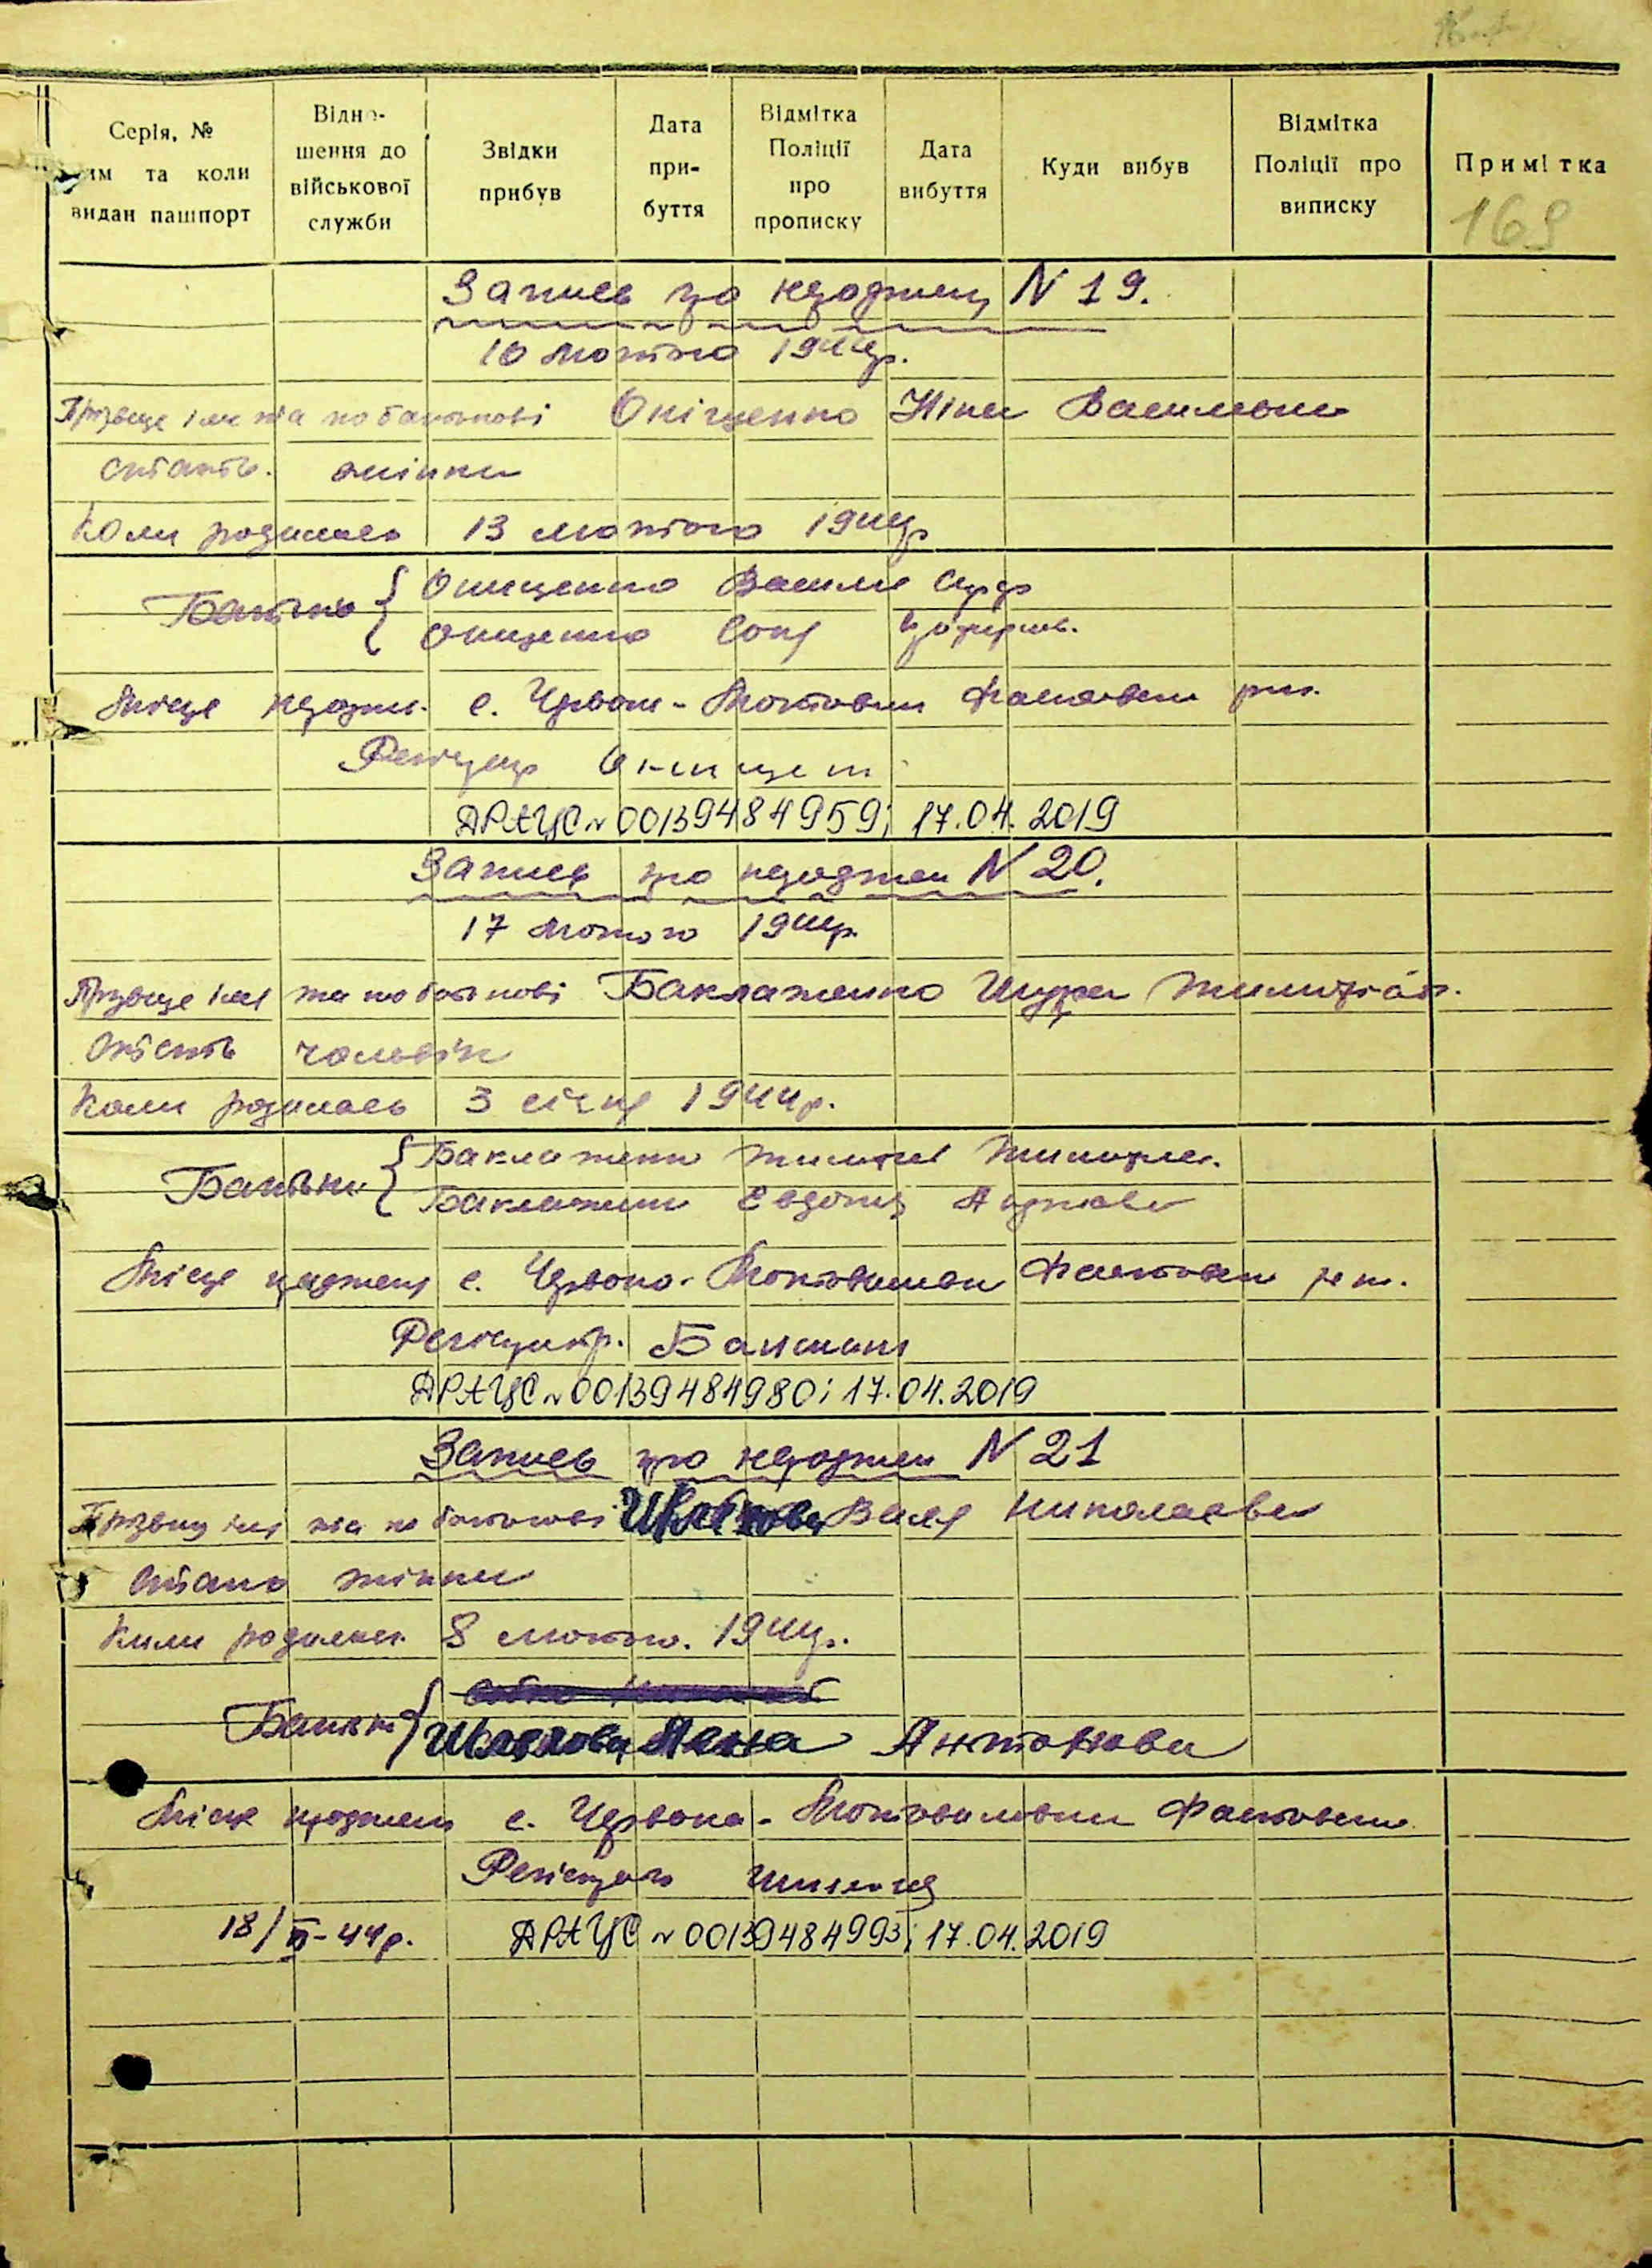 Серія, № ким та коли видан пашпорт
Відношення до військової служби
Звідки прибув
Дата прибуття
Відмітка Поліції про прописку
Дата вибуття
Куди вибув
Відмітка Поліції про виписку
Примітка
169
Запись про народжен N 19.
16 лютого 1944р.
Прізвище імя та по батькові Оніщенко Ніна Васильвна
стать. жінки
Коли родилась 13 лютого 1944р
Батьки { Онищенко Василь
Онищенко
Місце народж. с. Червон-Мотовил Фастовськ рн.
АРАЦС N 00139484959; 17.04.2019
Запись про народжен N 20.
17 лютого 1944р.
Прізвище імя та по батькові Баклаженко Шура
Стать чоловік
Коли родилась 3 січня 1944р.
Батьки { Баклаженко
Баклаженко Евдокія
Місце народженя с. Червоно-Мотовиловки Фастовськ рн.
Регістр.
АРАЦС N 00139484980; 17.04.2019
Запись про народжен N 21
Прізвищ імя та по батькові Валя Николаевна
жінки
Коли родилась 8 лютого. 1944р.
Батьки { Антоновна
Місце народжен с. Червона-Мотовиловки Фастовськ
18/II-44р. АРАЦС N 00139484993; 17.04.2019